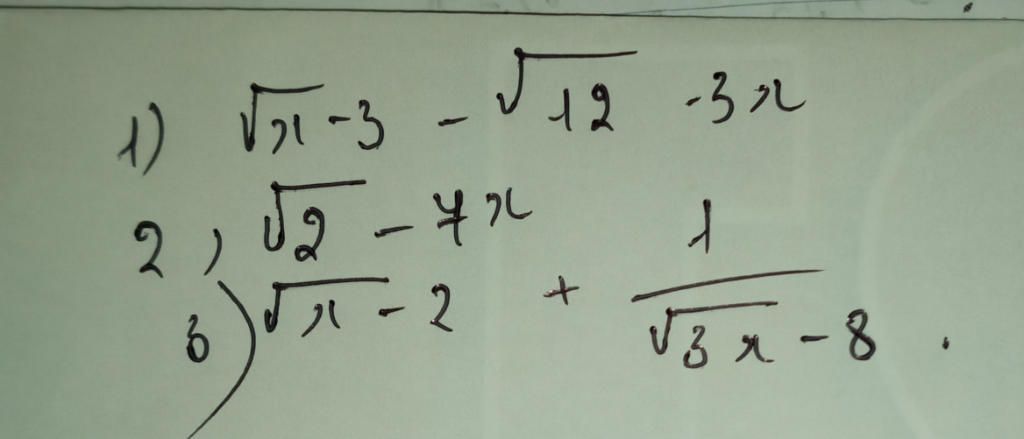 1) √x - 3 - √12 - 3x
2, √2 - 7x
3) √x - 2 + 1/(√3x - 8) .